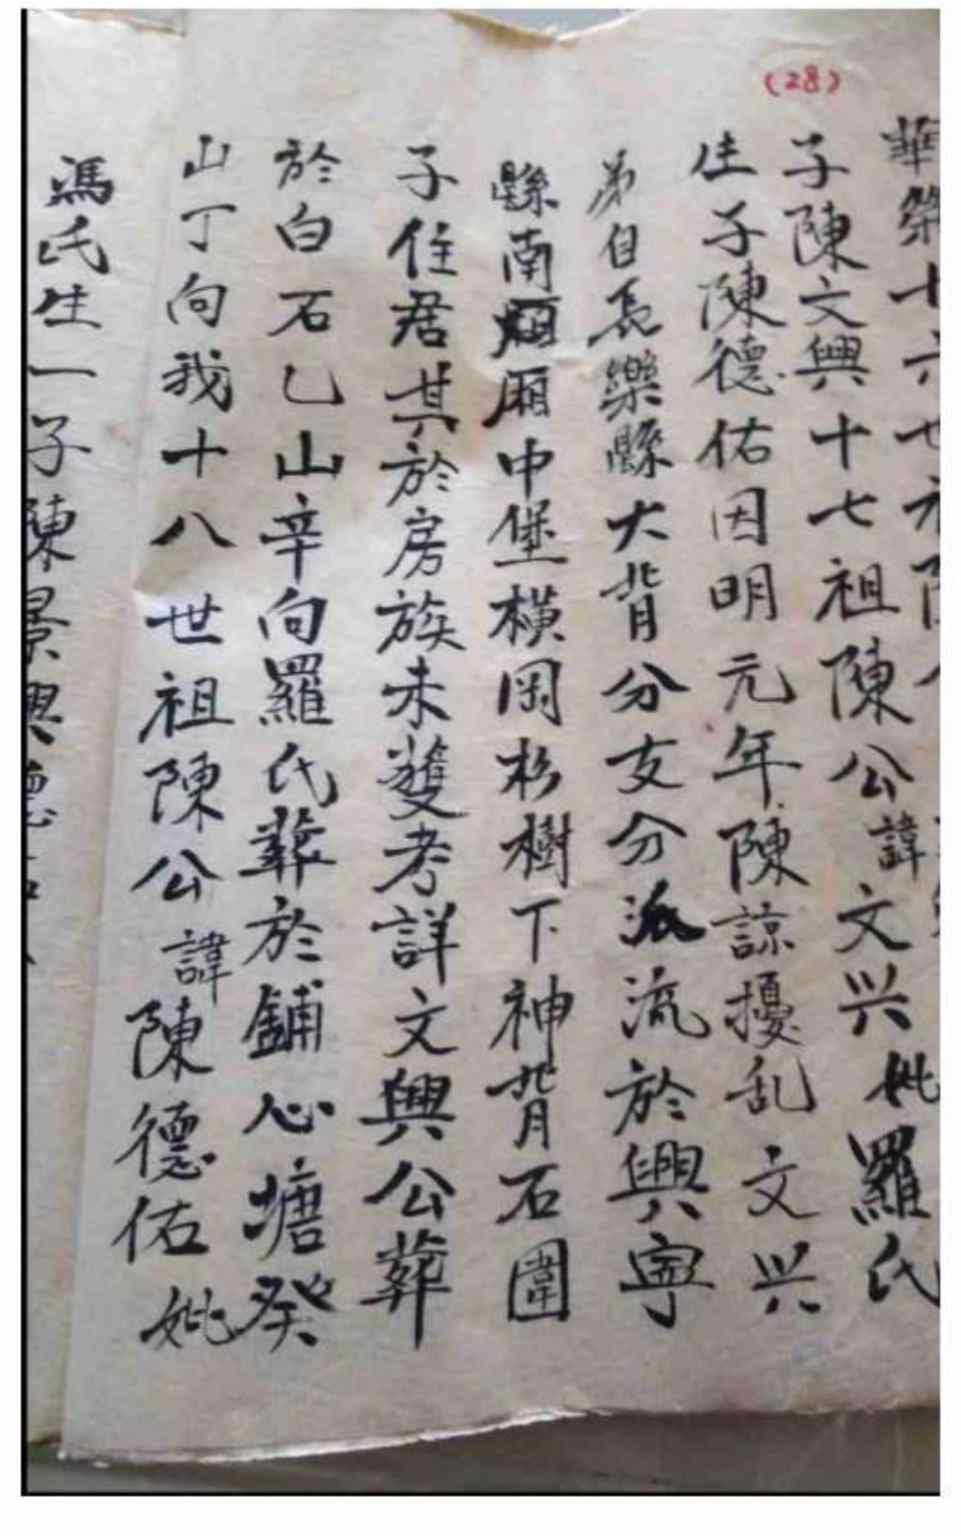 (28)
華榮十六世祖陳公
子陳文興十七祖陳公諱文兴妣羅氏
生子陳德佑因明元年陳諒擾乱文兴
弟自長樂縣大背分支分派流於興寧
縣南厢厢中堡橫岡杉樹下神背石圍
子住居其於房族未獲考詳文興公葬
於白石乙山辛向羅氏葬於鋪心塘癸
山丁向我十八世祖陳公諱陳德佑妣
馮氏生一子陳景興德